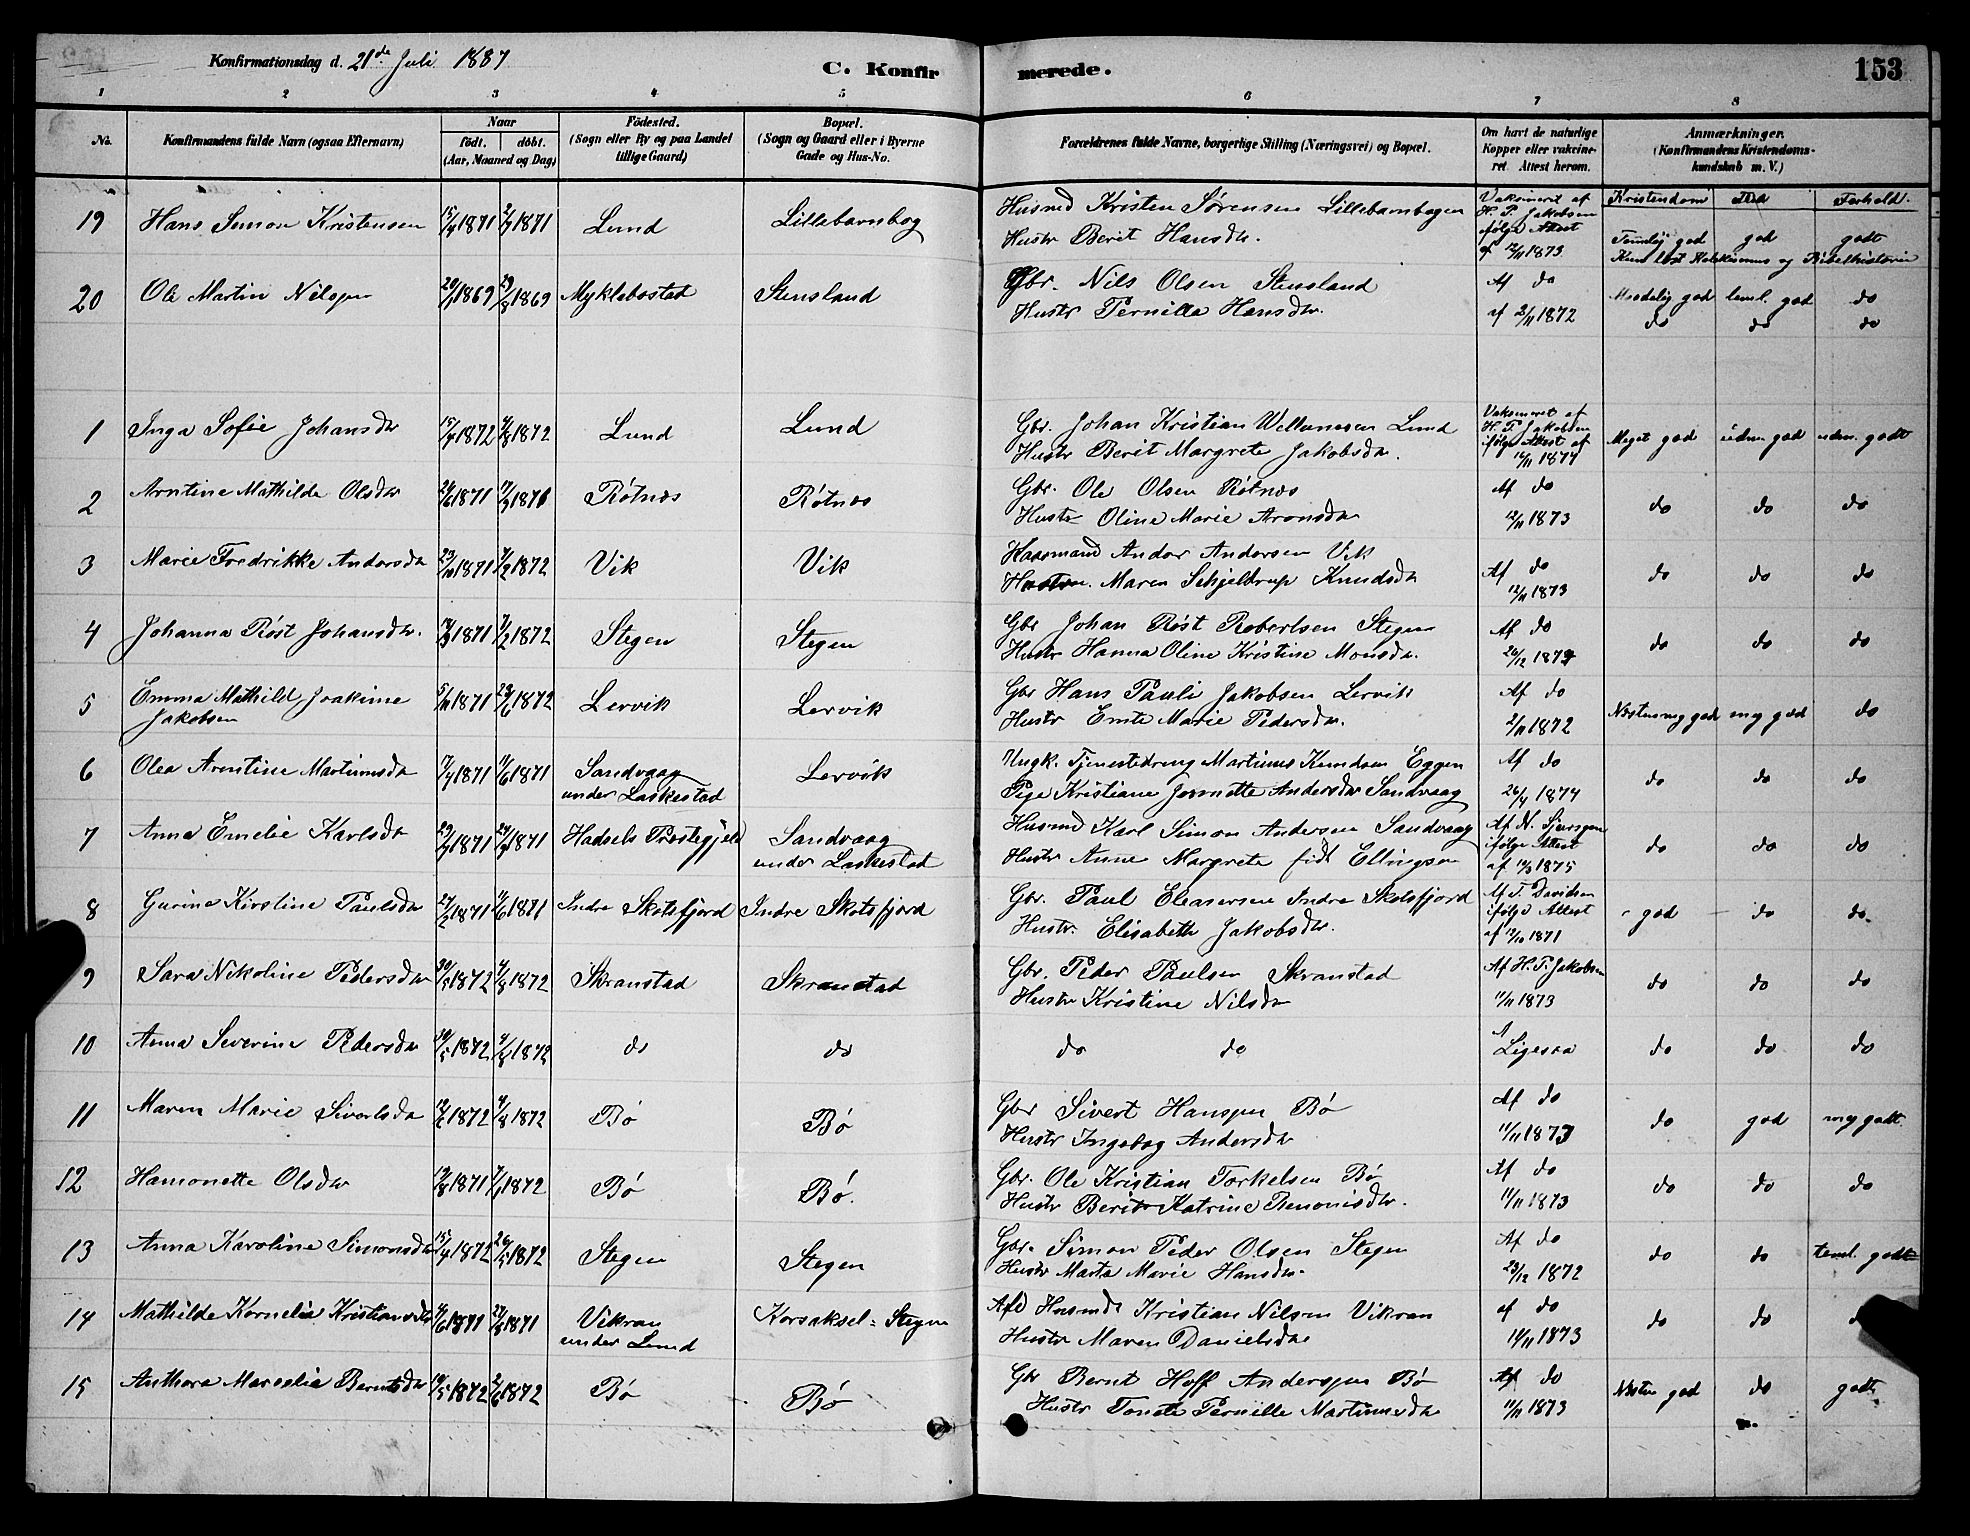 Konfirmationsdag d. 21de Juli 1887
C. Konfirmerede.
153
1 2 3 4 5 6 7 8
No. Konfirmandens fulde Navn (ogsaa Efternavn) Naar födt. döbt. (Aar, Maaned og Dag) Födested. (Sogn eller By og paa Landet tillige Gaard) Bopæl. (Sogn og Gaard eller i Byerne Gade og Hus-No. Forældrenes fulde Navne, borgerlige Stilling (Næringsvei) og Bopæl. Om havt de naturlige Kopper eller vakcineret. Attest herom. Anmærkninger. (Konfirmandens Kristendomskundskab m. V.)
Kristendom Flid Forhold.
19 Hans Simon Kristensen 15/4 1871 2/7 1871 Lund Lillebarnbog Husmd Kristen Sørensen Lillebarnbogen Vaksineret af H. P. Jakobsen
Hustr Berit Hansdtr. ifølge Attest af 12/11 1873 Temlig god god godt
Kun læst Katekismus og Bibelhistorie
20 Ole Martin Nilssen 1869 1869 Myklebostad Stensland Gbr. Nils Olsen Stensland Af do Maadelig god teml. god do
Hustr Pernilla Hansdtr. af 2/11 1872 do do do
1 Inga Sofie Johansdtr 15/4 1872 4/8 1872 Lund Lund Gbr. Johan Kristian Willumsen Lund Vaksineret af H. P. Jakobsen
Hustr Berit Margrete Jakobsdtr. ifølge Attest af 12/11 1874 Meget god udm. god udm. godt
2 Arntine Mathilde Olsdtr 26/6 1871 1871 Røtnes Røtnes Gbr. Ole Olsen Røtnes Af do
Hustr Oline Marie Aronsdtr 12/11 1873 do do do
3 Marie Fredrikke Andersdtr 23/10 1871 4/2 1872 Vik Vik Kaarmand Andor Andersen Vik
Hustru. Maren Schjeldrup Knudsdtr Af do 12/11 1873 do do do
4 Johanna Røst Johansdtr. 1871 4/2 1872 Stegen Stegen Gbr Johan Røst Robertsen Stegen Af do
Hustr Hanna Oline Kristine Monsdtr. 26/12 1872 do do do
5 Emma Mathild Joakime Jakobsen 5/11 1871 23/6 1872 Lervik Lervik Gbr Hans Pauli Jakobsen Lervik Af do
Hustr Emte Marie Pedersdtr. 2/11 1872 Næsten meg god meg god do
6 Olea Arentine Martinusdtr 7/4 1871 11/6 1871 Sandvaag under Laskestad Lervik Ungk. Tjenestedreng Martinus Knudsen Eggen Af do
Pige Kristiane Jonette Andersdtr Sandvaag 26/4 1874 do do do
7 Anna Emelie Karlsdtr 1871 1871 Hadsels Prestegjeld Sandvaag under Laskestad Husmd Karl Simon Andersen Sandvaag Af N. Sjursen
Hustr Anne Margrete født Ellingsen ifølge Attest af 1875 do do do
8 Gurine Kirstine Paulsdtr 27/2 1871 11/6 1871 Indre Skotsfjord Indre Skotsfjord Gbr. Paul Eleasersen Indre Skotsfjord Af T. Davidsen
Hustr. Elisabeth Jakobsdtr. ifølge Attest af 1871 god do do.
9 Sara Nikoline Pedersdtr 30/5 1872 4/8 1872 Skranstad Skranstad Gbr. Peder Paulsen Skranstad Af H. P. Jakobsen
Hustr Kristine Nilsdtr 11/11 1873 do do do
10 Anna Severine Pedersdtr 30/5 1872 4/8 1872 do do do do Ligesaa do do do
11 Maren Marie Sivertsdtr 1872 4/8 1872 Bø Bø Gbr Sivert Hanssen Bø Af do
Hustr Ingebog Andersdtr 11/11 1873 do god meg godt
12 Hamonette Olsdtr 1871 7/1 1872 Bø Bø. Gbr. Ole Kristian Torkelsen Bø Af do
Hustr Berit Katrine Benonisdtr. 11/11 1873 do do do
13 Anna Karoline Simonsdtr 15/4 1872 26/5 1872 Stegen Stegen Gbr. Simon Peder Olsen Stegen Af do
Hustr Marta Marie Hansdtr. 23/12 1872 do do teml. godt
14 Mathilde Kornelia Kristiansdtr 1871 1871 Vikran under Lund Korsaksel = Stegen Afd Husmds Kristian Nilsen Vikran af do
Hustr Maren Danielsdtr 14/11 1873 do do
15 Anthora Marselie Berntsdtr 1872 1872 Bø Bø Gbr Bernt Hoff Anderssen Bø Af do
Hustr Tonete Pernille Martinusdtr 11/11 1873 Næsten god do godt